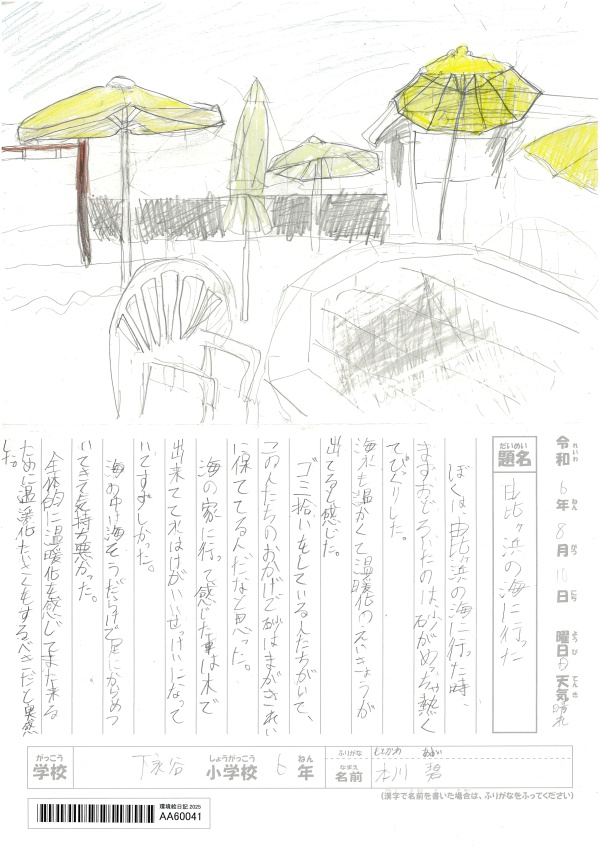 令和6年8月10日 曜日日 天気晴れ
れいわ ねん がつ にち ようび てんき
だいめい
題名 由比ヶ浜の海に行った
ぼくは、由比ヶ浜の海に行った時、
まずおどろいたのは、砂がめっちゃ熱く
てびっくりした。
海水も温かくて温暖化のえいきょうが
出てると感じた。
ゴミ拾いをしている人たちがいて、
この人たちのおかげで砂はまがきれい
に保ててる人だなと思った。
海の家に行って感じた事は木で
出来ててれはけがいいせっけいになって
いてすずしかった。
海の中は海そうだらけで足にからめつ
いてきて気持ち悪かった。
全体的に温暖化を感じてまた来る
ために温暖化たいさくをするべきだと感
じた。
がっこう
学校
しょうがっこう
小学校 6
ねん
年
ふりがな
なまえ
名前 本川 碧
(漢字で名前を書いた場合は、ふりがなをふってください)
環境絵日記 2025
AA60041